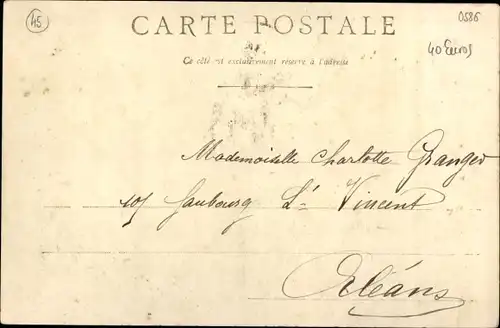 45
CARTE POSTALE
0586
40 Euros
Ce côté est exclusivement réservé à l'adresse
Mademoiselle Charlotte Granger
105 faubourg St Vincent
Orléans